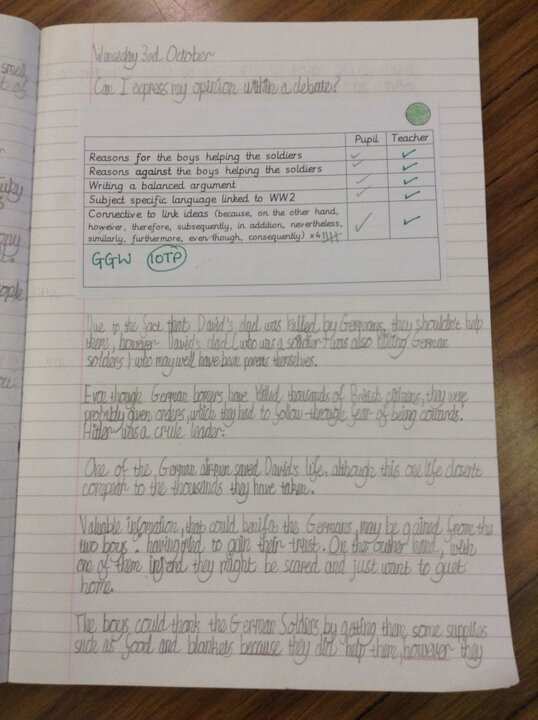 Wenseday 3rd October
Can I express my opinion within a debate?
Pupil Teacher
Reasons for the boys helping the soldiers ✓ ✓
Reasons against the boys helping the soldiers ✓ ✓
Writing a balanced argument ✓ ✓
Subject specific language linked to WW2 ✓ ✓
Connective to link ideas (because, on the other hand,
however, therefore, subsequently, in addition, nevertheless,
similarly, furthermore, even though, consequently) x4 ✓ ✓
GGW IOTP
Due to the fact that David's dad was killed by Germans, they shouldn't help
them, however David's dad (who was a soldier) was also killing German
solders) who may well have been parents themselves.
Even though German bomers have killed thousands of British citizens, they were
probably given orders, which they had to follow through fear of being cowards.
Hitler was a crule leader.
One of the German airman saved David's life, although this one life doesn't
compear to the thousands they have taken.
Valuable infomation, that could benifit the Germans, may be gained from the
two boys. having to gain their trust. On the outher hand, with
one of them injerd they might be scared and just want to guet
home.
The boys could thank the German Soldiers by getting them some supplies
such as food and blankets because they did help them, however they